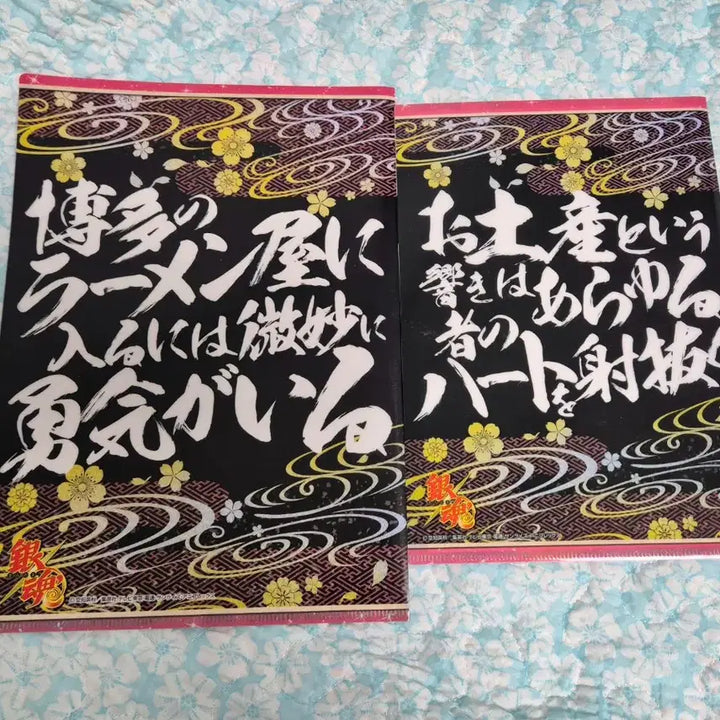 博多の
ラーメン屋に
入るには微妙に
勇気がいる
銀魂
お土産という
響きはあらゆる
者の
ハートを射抜く
銀魂